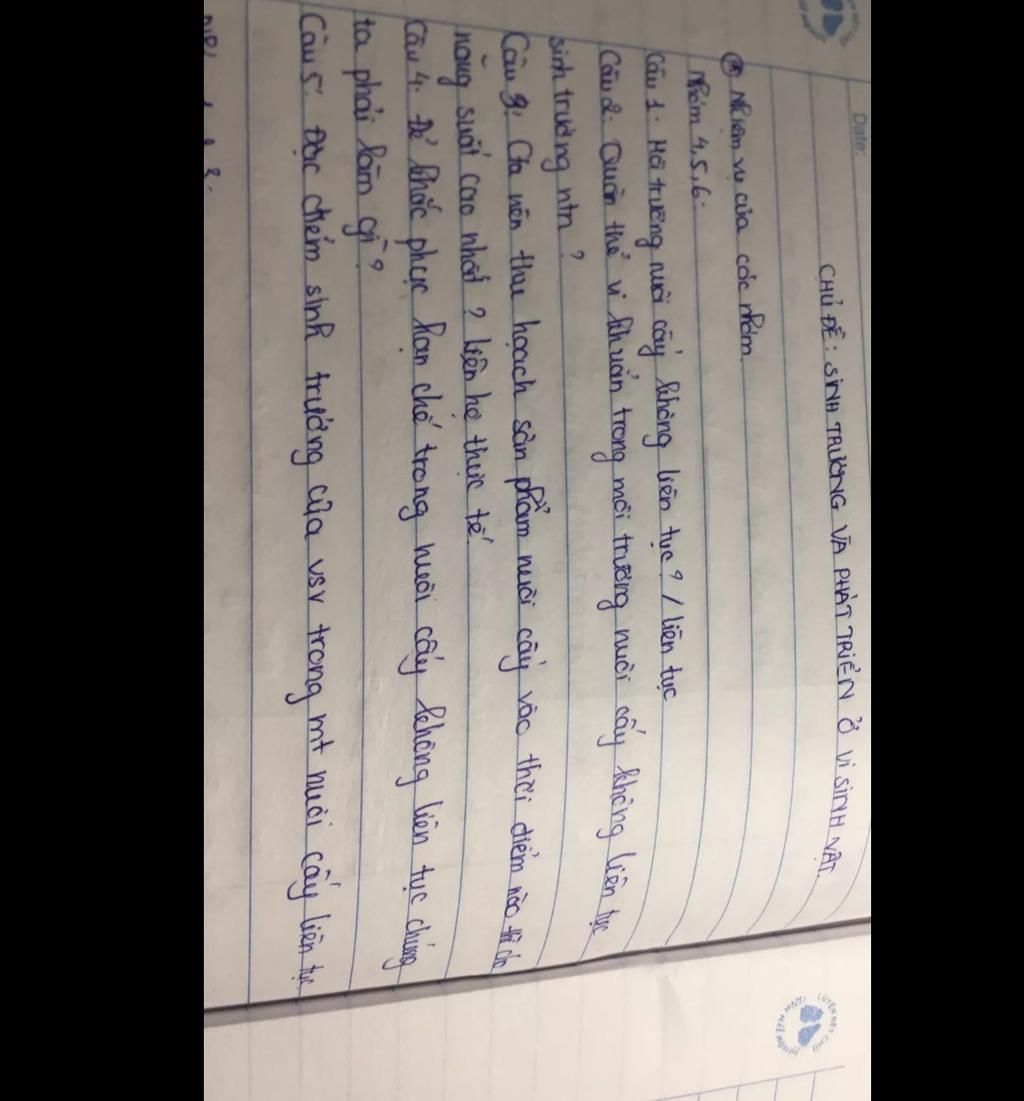 Date:
CHỦ ĐỀ: SINH TRƯỞNG VÀ PHÁT TRIỂN Ở VI SINH VẬT.
* Nhiệm vụ của các nhóm.
Nhóm 4,5,6:
Câu 1. Môi trường nuôi cấy không liên tục? / liên tục
Câu 2. Quần thể vi khuẩn trong môi trường nuôi cấy không liên tục
sinh trưởng ntn?
Câu 3: Cta nên thu hoạch sản phẩm nuôi cấy vào thời điểm nào thì cho
năng suất cao nhất? Liên hệ thực tế.
Câu 4. Để khắc phục hạn chế trong nuôi cấy không liên tục chúng
ta phải làm gì?
Câu 5: Đặc điểm sinh trưởng của vsv trong mt nuôi cấy liên tục.
LUYỆN NÉT CHỮ